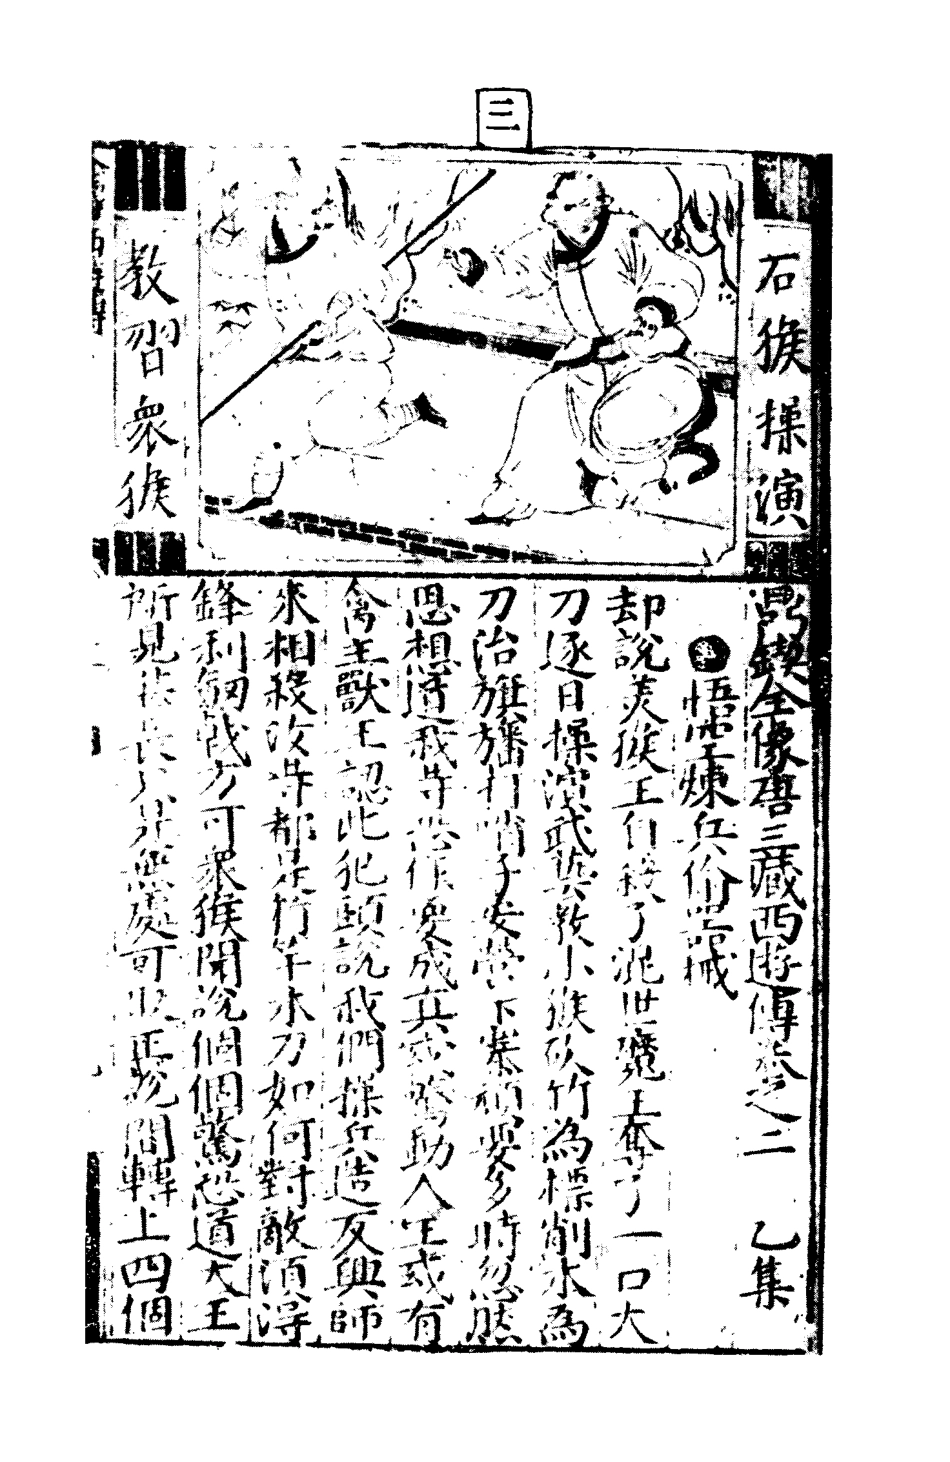 三
石猴操演
教習衆猴
鼎鍥全像唐三藏西遊傳卷之二 乙集
悟空煉兵偷器械
却說美猴王自殺了混世魔王奪了一口大
刀逐日操演武藝教小猴砍竹為標削木為
刀治旗旛打哨子安營下寨頑耍多時忽然
思想道我等恐作耍成真或驚動人王或有
禽王獸王認此犯頭說我們操兵造反興師
來相殺汝等都是竹竿木刀如何對敵須得
鋒利劍戟方可衆猴聞說個個驚恐道大王
所見 處可 正說間轉上四個